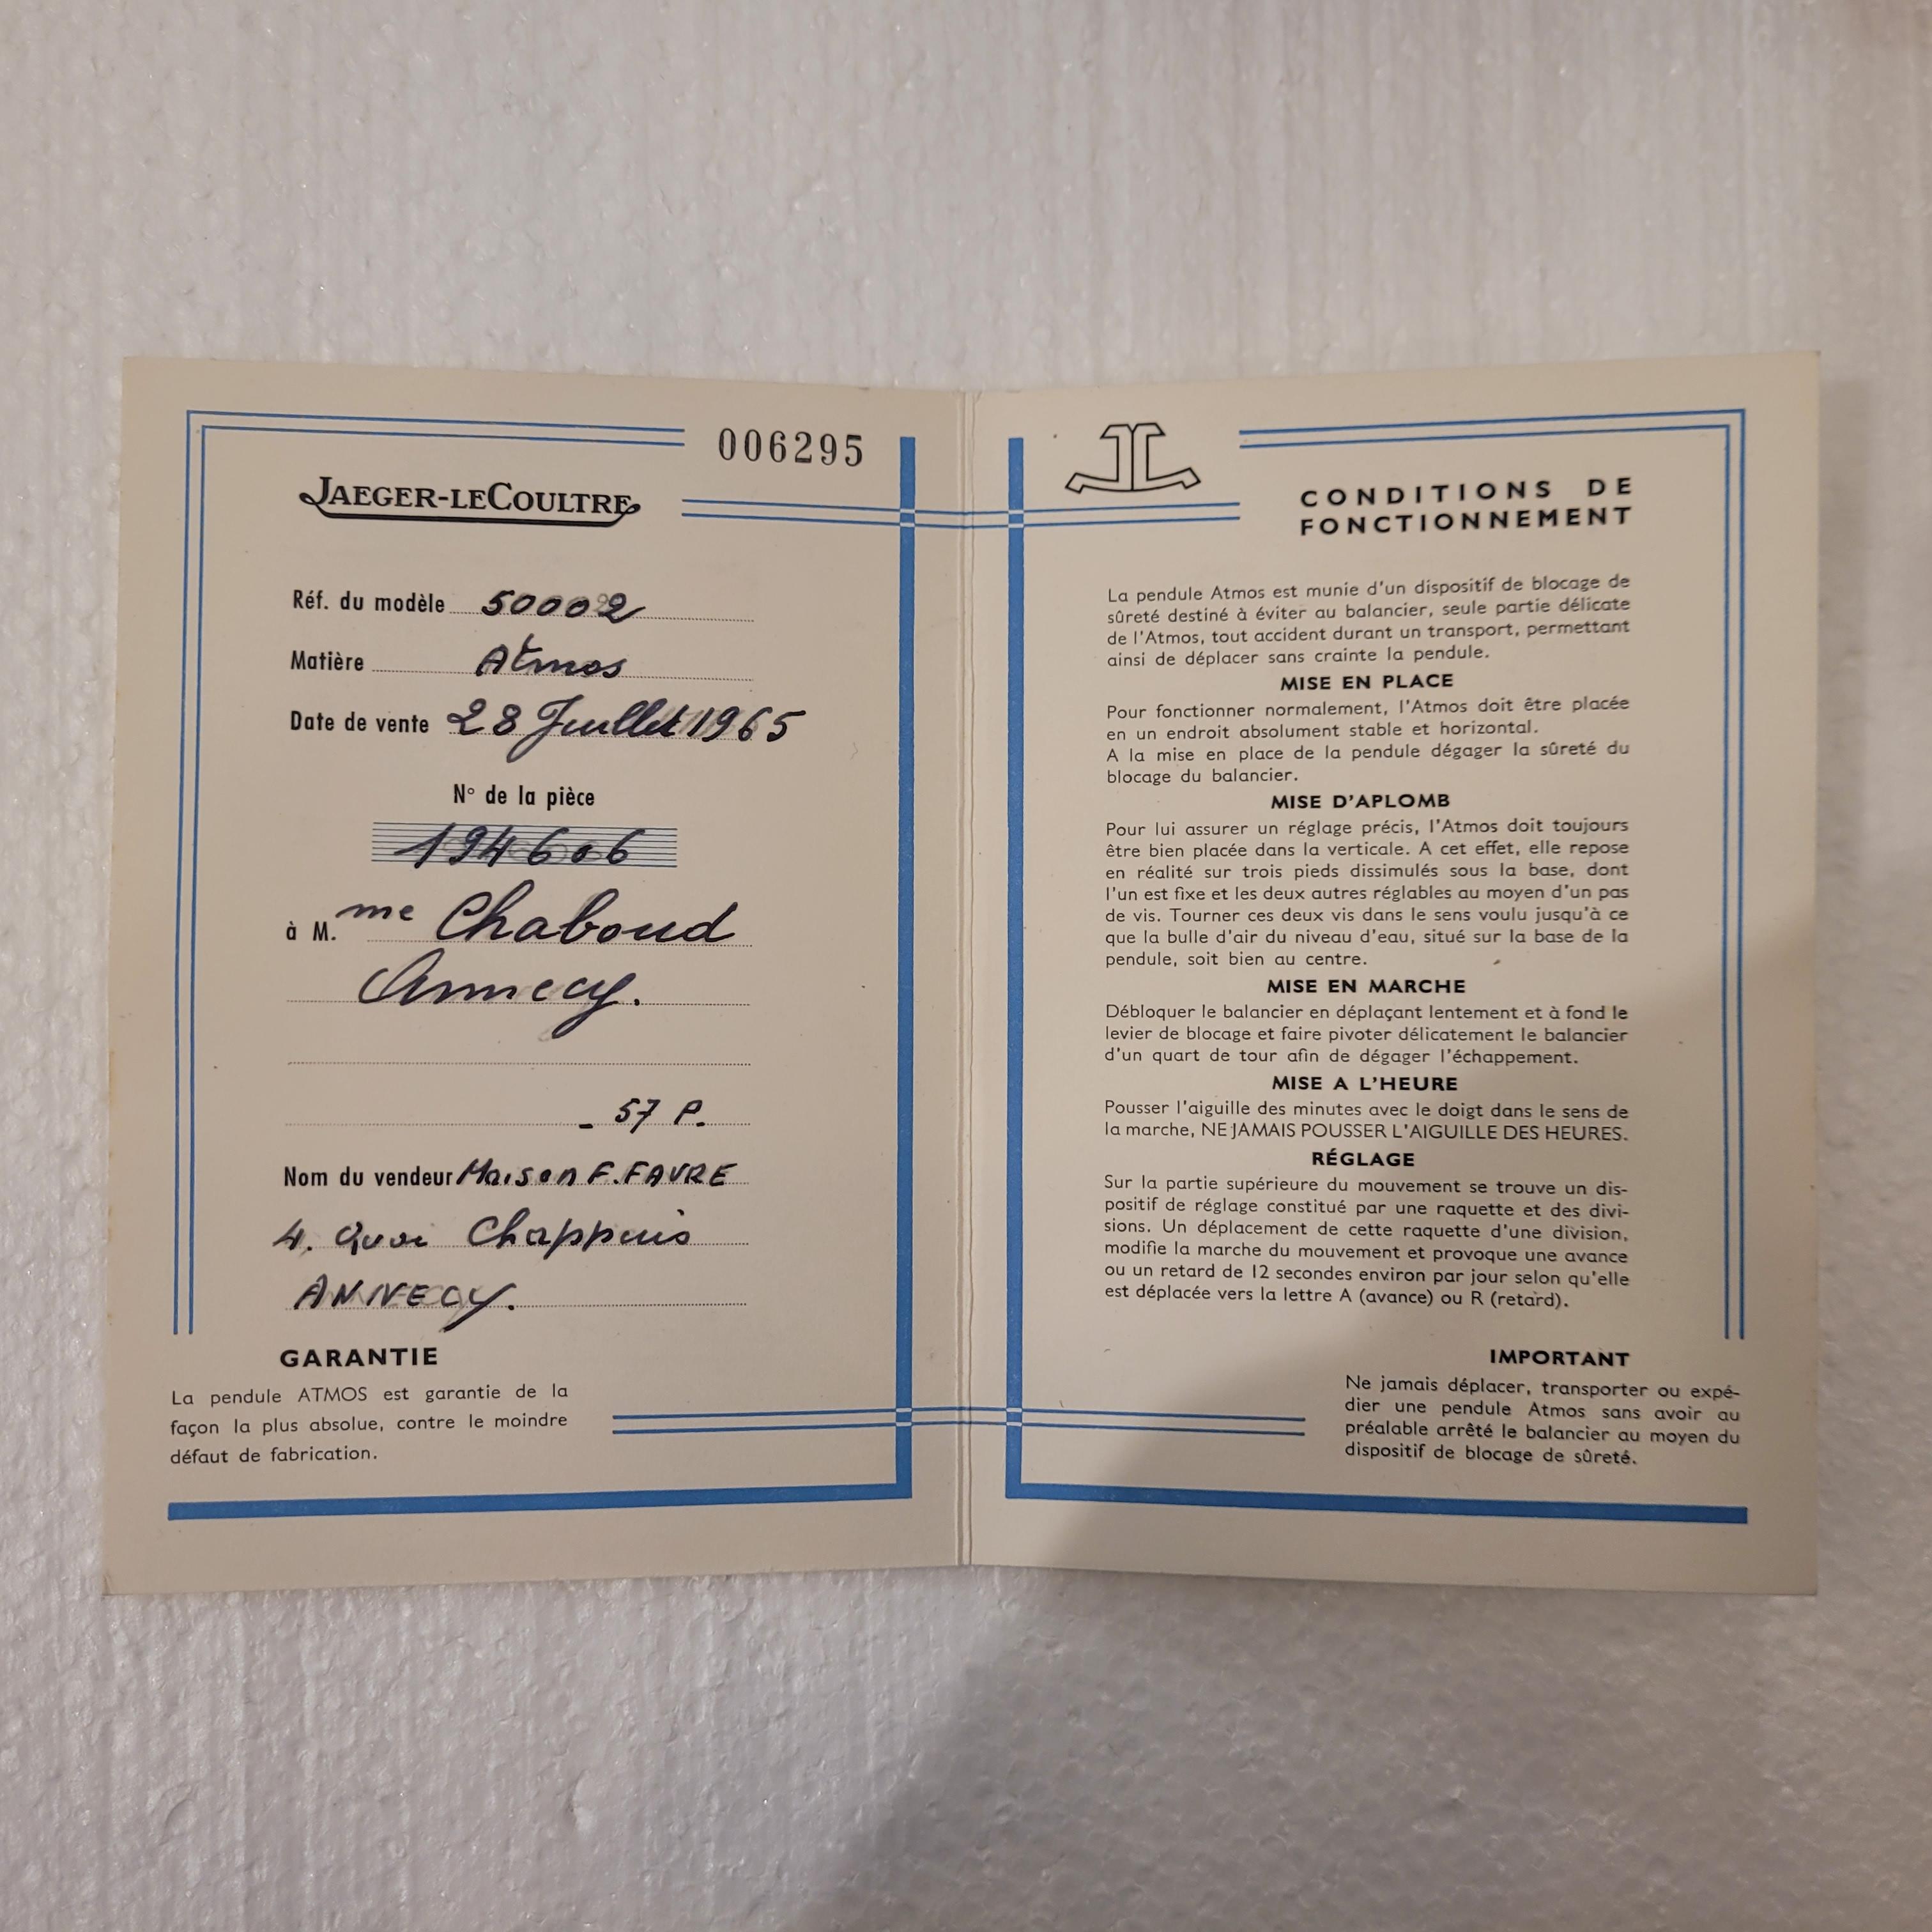 006295
JAEGER-LECOULTRE
Réf. du modèle 50002
Matière Atmos
Date de vente 28 Juillet 1965
N° de la pièce
194606
à M.me Chaboud
Annecy.
- 57 P.
Nom du vendeur Maison F. FAVRE
4. Quai Chappuis
ANNECY.
GARANTIE
La pendule ATMOS est garantie de la
façon la plus absolue, contre le moindre
défaut de fabrication.
CONDITIONS DE
FONCTIONNEMENT
La pendule Atmos est munie d'un dispositif de blocage de
sûreté destiné à éviter au balancier, seule partie délicate
de l'Atmos, tout accident durant un transport, permettant
ainsi de déplacer sans crainte la pendule.
MISE EN PLACE
Pour fonctionner normalement, l'Atmos doit être placée
en un endroit absolument stable et horizontal.
A la mise en place de la pendule dégager la sûreté du
blocage du balancier.
MISE D'APLOMB
Pour lui assurer un réglage précis, l'Atmos doit toujours
être bien placée dans la verticale. A cet effet, elle repose
en réalité sur trois pieds dissimulés sous la base, dont
l'un est fixe et les deux autres réglables au moyen d'un pas
de vis. Tourner ces deux vis dans le sens voulu jusqu'à ce
que la bulle d'air du niveau d'eau, situé sur la base de la
pendule, soit bien au centre.
MISE EN MARCHE
Débloquer le balancier en déplaçant lentement et à fond le
levier de blocage et faire pivoter délicatement le balancier
d'un quart de tour afin de dégager l'échappement.
MISE A L'HEURE
Pousser l'aiguille des minutes avec le doigt dans le sens de
la marche, NE JAMAIS POUSSER L'AIGUILLE DES HEURES.
RÉGLAGE
Sur la partie supérieure du mouvement se trouve un dis-
positif de réglage constitué par une raquette et des divi-
sions. Un déplacement de cette raquette d'une division,
modifie la marche du mouvement et provoque une avance
ou un retard de 12 secondes environ par jour selon qu'elle
est déplacée vers la lettre A (avance) ou R (retard).
IMPORTANT
Ne jamais déplacer, transporter ou expé-
dier une pendule Atmos sans avoir au
préalable arrêté le balancier au moyen du
dispositif de blocage de sûreté.